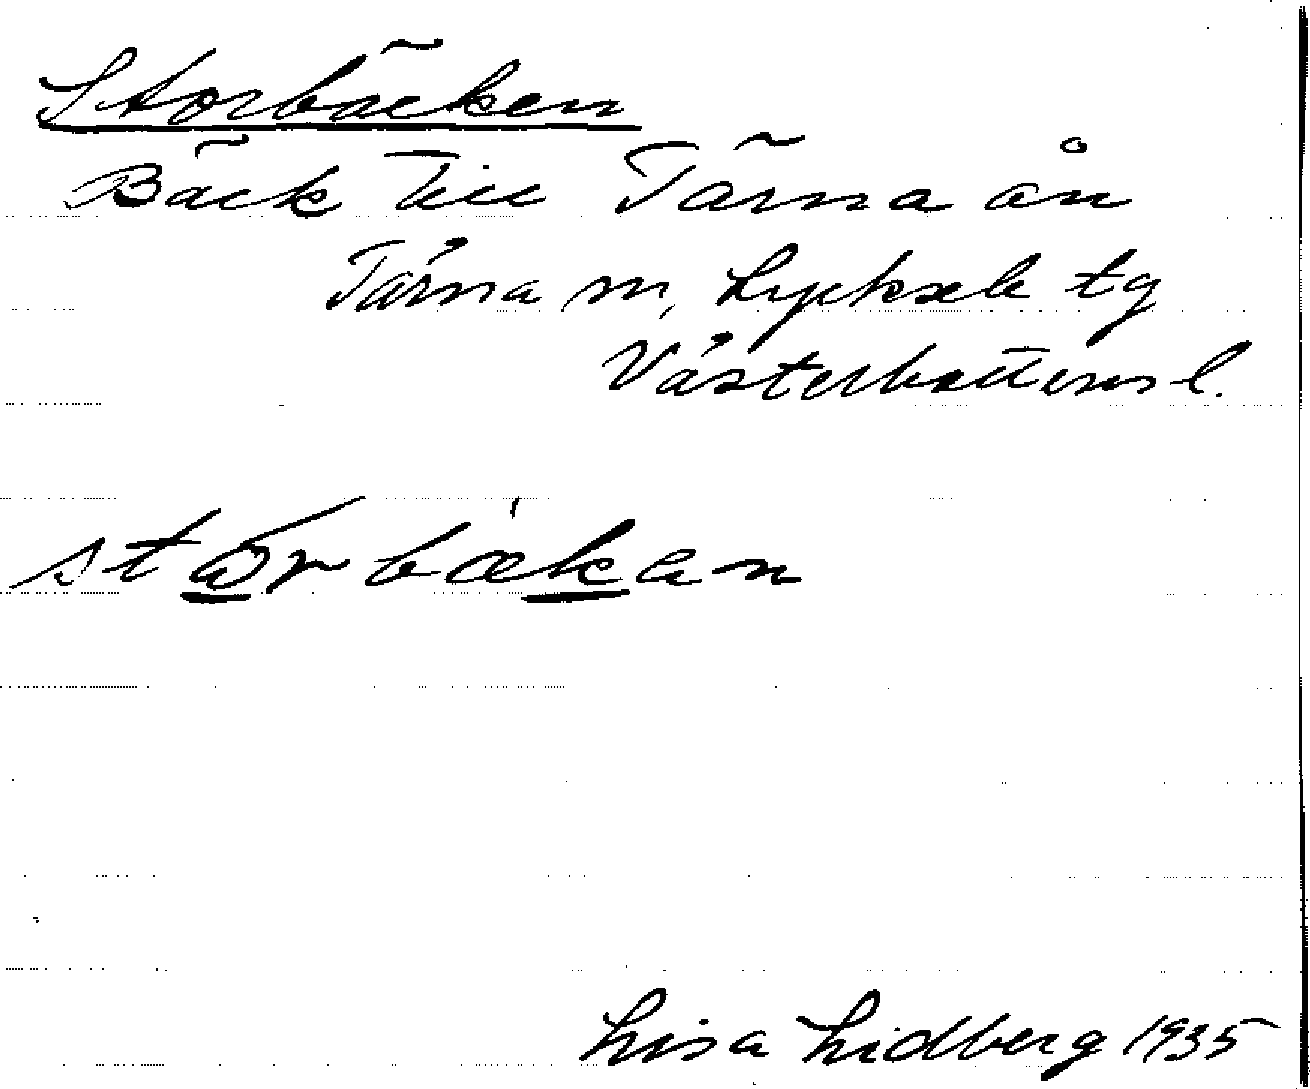 Storbäcken
Bäck till Tärna ån
Tärna sn, Lycksele tg
Västerbottens l.
Lisa Lidberg 1935